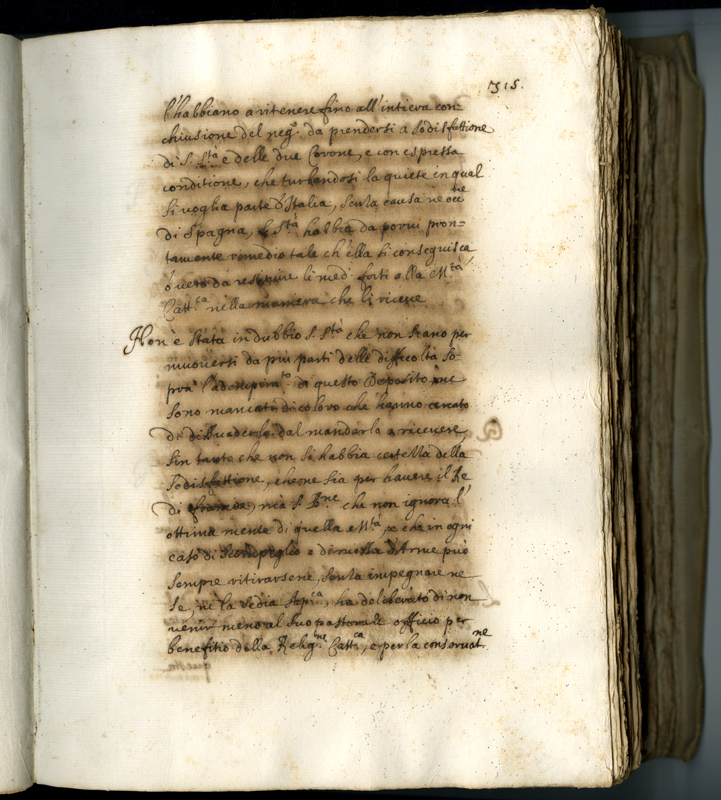 315.
l'habbiano a ritenere fino all'intiera con=
chiusione del neg.º da prendersi a sodisfattione
di S. S.tà e delle due Corone, e con espressa
conditione, che turbandosi la quiete in qual
si voglia parte d'Italia, senza causa ne occ.ne
di Spagna, S. S.tà habbia da porvi pron=
tamente rimedio tale ch'ella si conseguisca
ò vero da restituire li med.i forti alla M.tà
Catt.ca nella maniera che li riceve.
Non è stata in dubbio S. S.tà che non siano per
muoversi da più parti delle difficoltà so=
pra l'adempim.to di questo Deposito, ne
sono mancati di coloro che hanno cercato
di dissuaderla dal mandarla a ricevere,
sin tanto che non si habbia certezza della
sodisfattione, che ne sia per havere il Re
di francia, mà S. B.ne che non ignora l'
ottima mente di quella M.tà, e che in ogni
caso di scompiglio e di mossa d'Arme può
sempre ritirarsene, senza impegnare ne
se, ne la Sedia Ap.ca, ha deliberato di non
venir meno al suo pastorale officio per
benefitio della Relig.ne Catt.ca, e per la conservat.ne
questa